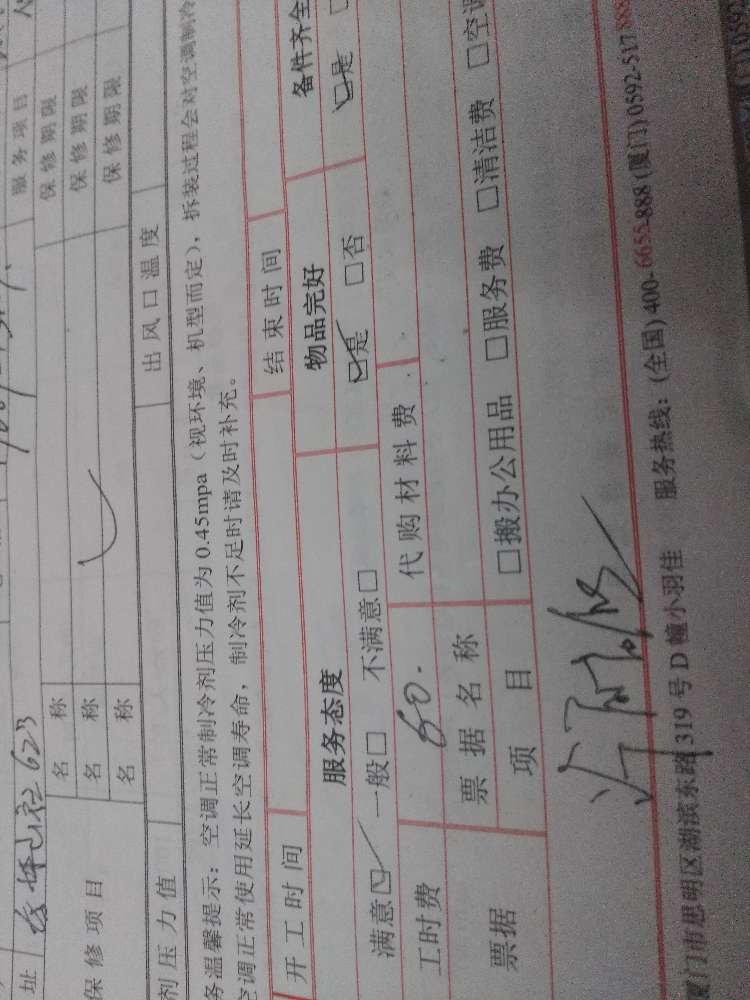 址 623 服务项目
保修项目 名称 保修期限
名称 保修期限
名称 保修期限
剂压力值 出风口温度
务温馨提示：空调正常制冷剂压力值为0.45mpa（视环境、机型而定），拆装过程会对空调制冷
空调正常使用延长空调寿命，制冷剂不足时请及时补充。
开工时间 结束时间
服务态度 物品完好 备件齐全
满意☑ 一般□ 不满意□ ☑是 □否 ☑是 □
工时费 80. 代购材料费
票据 票据名称
项目 □搬办公用品 □服务费 □清洁费 □空调
厦门市思明区湖滨东路319号D幢小羽佳 服务热线：(全国)400-6655-888 (厦门)0592-517